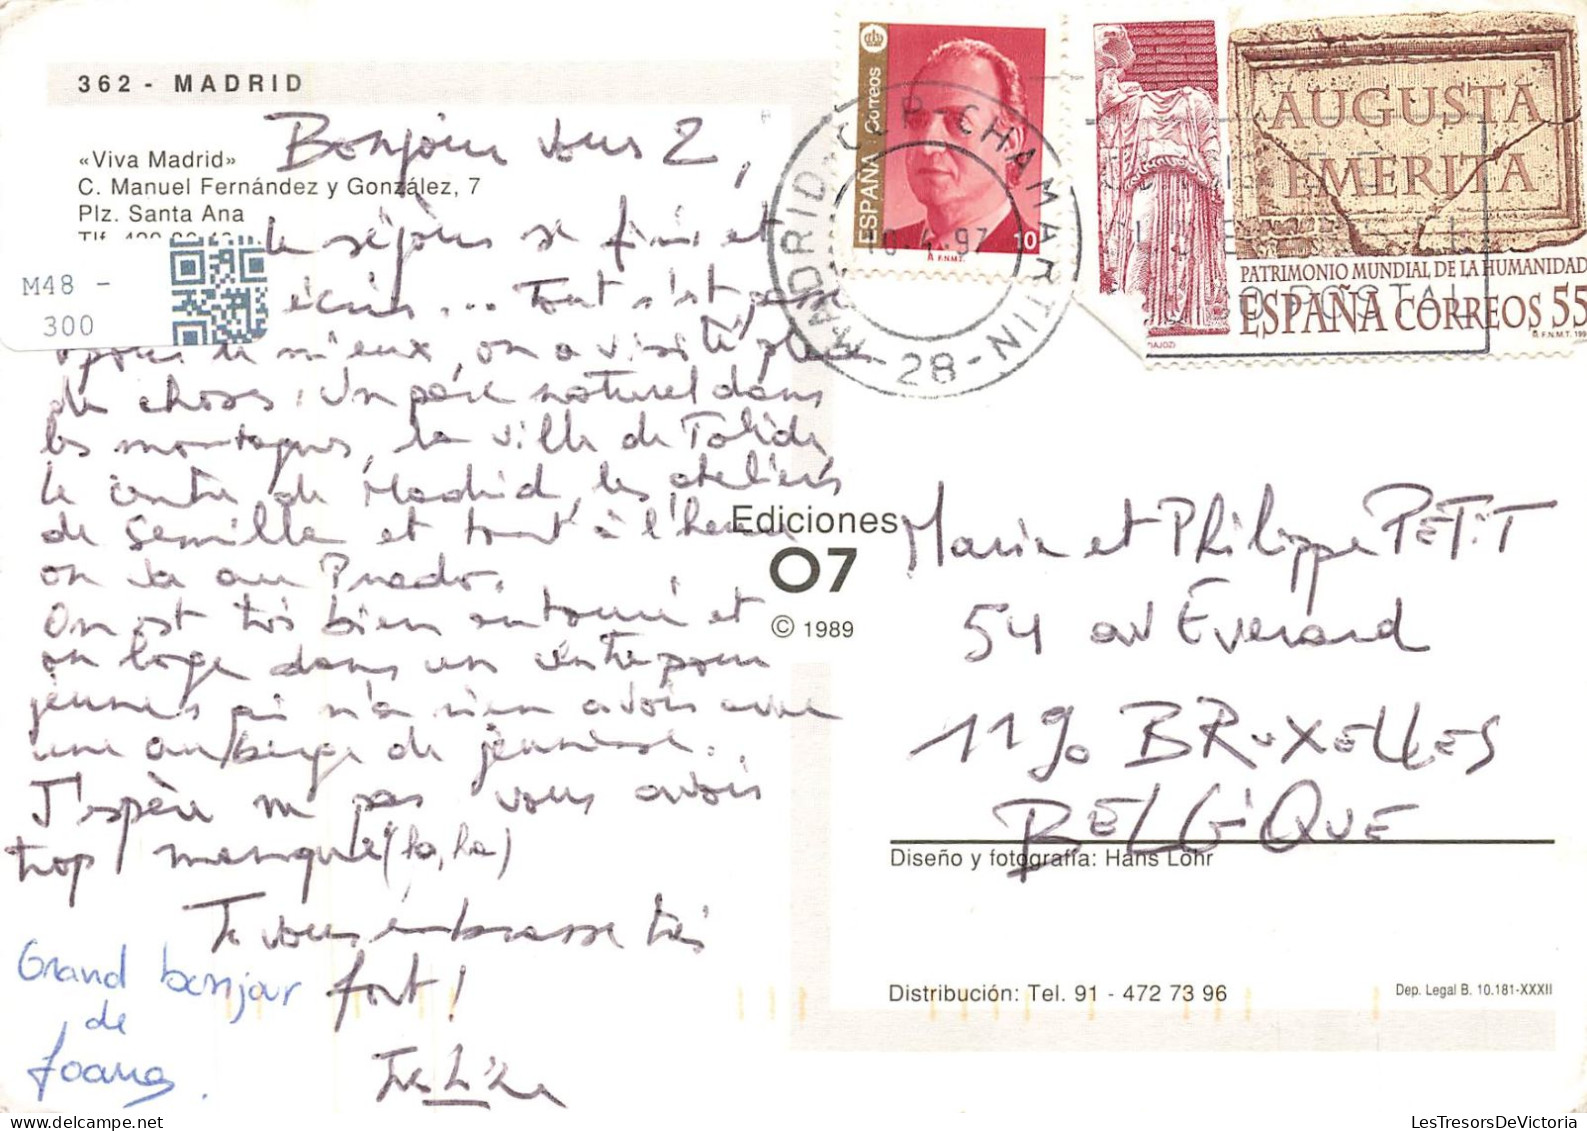 362 - MADRID
«Viva Madrid»
C. Manuel Fernández y González, 7
Plz. Santa Ana
M48 -
300
Bonjour vous 2,
le séjour se finit et
écris... Tout s'est passé
pour le mieux, on a visité plein
de choses: Un parc naturel dans
les montagnes, la ville de Tolède,
le centre de Madrid, les ateliers
de Semille et tout à l'heure
on va au Prado.
On est très bien entouré et
on loge dans un centre pour
jeunes qui n'a rien à voir avec
une auberge de jeunesse.
J'espère ne pas vous avoir
trop manqué (ha, ha)
Je vous embrasse très
fort!
Grand bonjour
de
Joana.
ESPAÑA Correos
10
F.N.M.T.
MADRID-CCP-CHAMARTIN
-28-
AUGUSTA
EMERITA
PATRIMONIO MUNDIAL DE LA HUMANIDAD
ESPAÑA CORREOS 55
F.N.M.T. 199
Ediciones
07
© 1989
Marie et Philippe PETIT
54 av Everard
1190 BRUXELLES
BELGIQUE
Diseño y fotografía: Hans Lohr
Distribución: Tel. 91 - 472 73 96
Dep. Legal B. 10.181-XXXII
LesTresorsDeVictoria